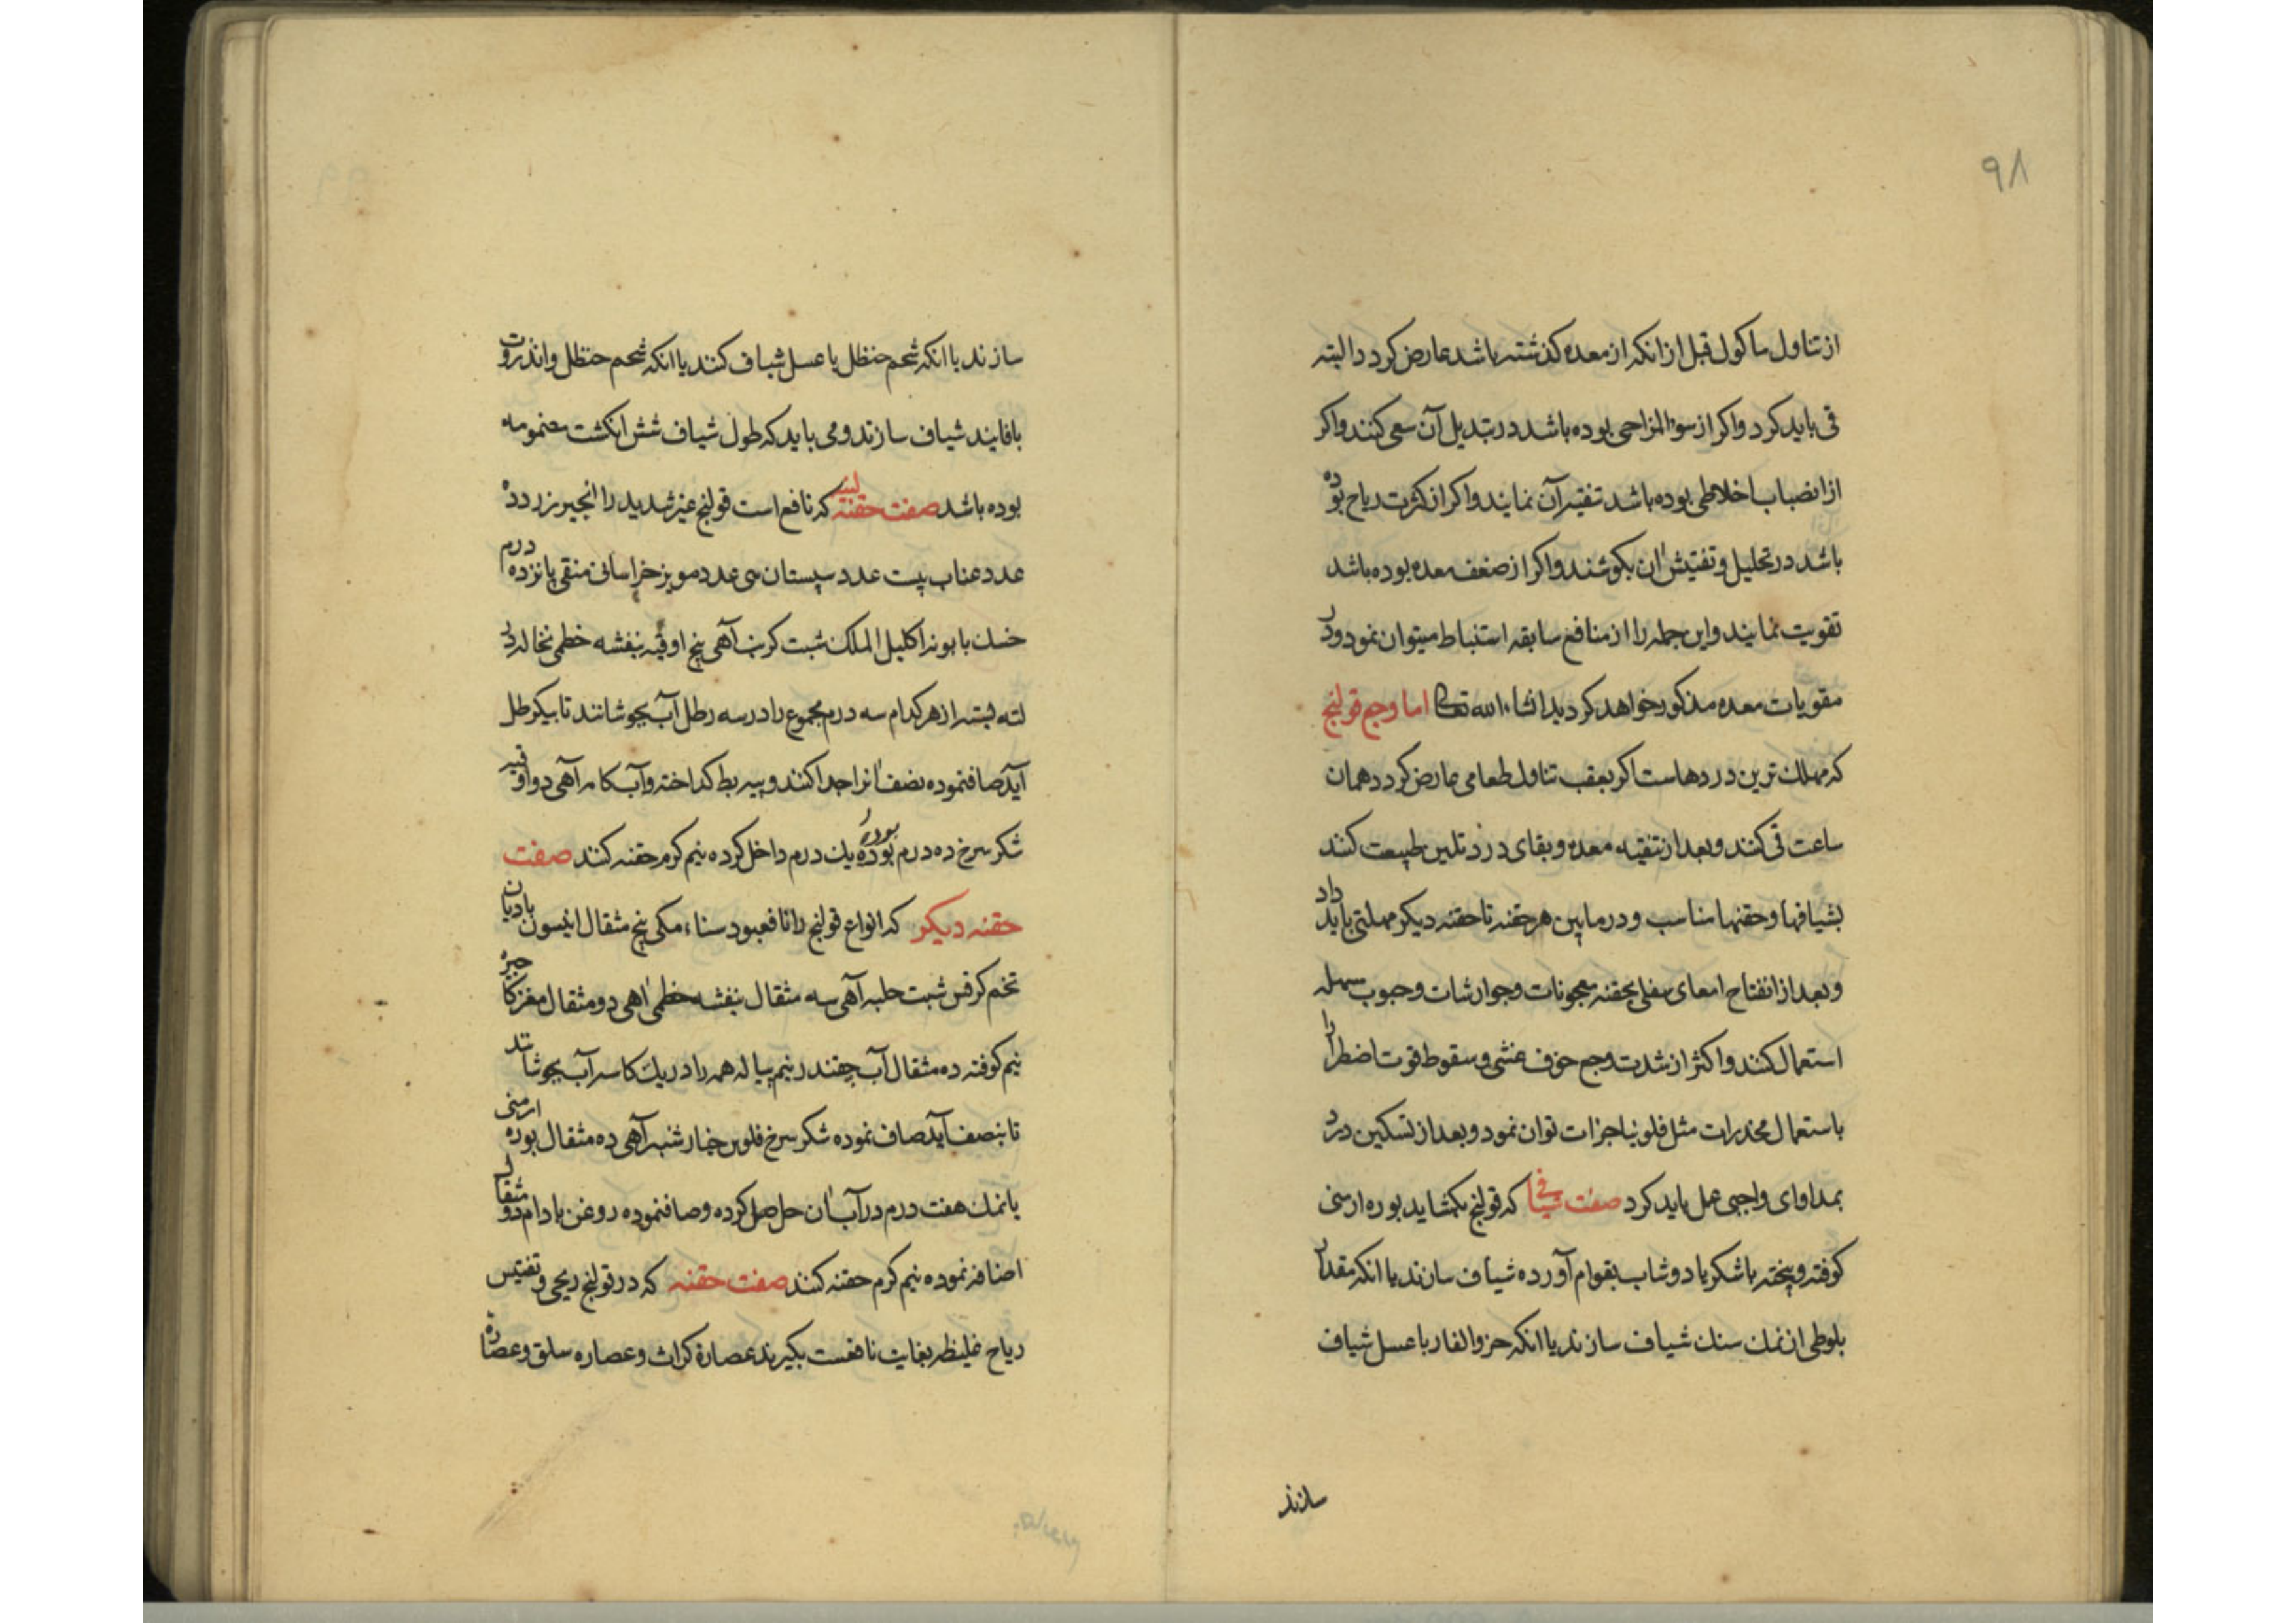 ۹۸
از تناول ماکول قبل از انکه از معده کذشته باشد عارض کردد البته
قی باید کرد واکر از سوء المزاجی بوده باشد در تبدیل آن سعی کنند واکر
از انضباب اخلاطی بوده باشد تنقیه آن نمایند واکر از کثرت ریاح بوده
باشد در تحلیل و تفتیش ان بکوشند واکر از ضعف معده بوده باشد
تقویت نمایند واین جمله را از منافع سابقه استنباط میتوان نمود ودر
مقویات معده مذکور خواهد کردید انشاء الله تعالی اما وجع قولنج
که مهلك ترین دردهاست اکر بعقب تناول طعامی عارض کردد همان
ساعت قی کنند وبعد از تنقیه معده و بقای درد تلیین طبیعت کنند
بشیافها وحقنها مناسب و در مابین هر حقنه تا حقنه دیکر مهلتی باید داد
وبعد از انفتاح امعای سفلی بحقنه معجونات وجوارشات وحبوب مسهله
استعمال کنند واکثر از شدت وجع خوف غشی و سقوط قوت اضطرارا
باستعمال مخدرات مثل فلونیا جرات توان نمود وبعد از تسکین درد
بمداوای واجبی عمل باید کرد صفت شیافی که قولنج بکشاید بوره ارمنی
کوفته و بیخته با شکر یا دوشاب بقوام آورده شیاف سازند یا انکه مقدار
بلوطی از نمك سنك شیاف سازند یا انکه خرو الفار با عسل شیاف
سازند
سازند یا انکه شحم حنظل با عسل شیاف کنند یا انکه شحم حنظل وانذروت
با فایند شیاف سازند ومی باید که طول شیاف شش انکشت مضمومه
بوده باشد صفت حقنه لینه که نافع است قولنج غیر شدید را انجیر زرد ده
عدد عناب بیست عدد سپستان سی عدد مویز خراسانی منقی پانزده درم
خسك بابونه اکلیل الملك شبت کرنب آهی پنج اوقیه بنفشه خطمی نخاله در
لته بسته از هر کدام سه درم مجموع را در سه رطل آب بجوشانند تا بیکرطل
آید صافنموده نصف انرا جدا کنند و پیه بط کداخته وآب کامه آهی دو اوقیه
شکر سرخ ده درم بوره یك درم داخل کرده نیم کرم حقنه کنند صفت
حقنه دیکر که انواع قولنج را نافعبود سناء مکی پنج مثقال انیسون بادیان
تخم کرفس شبت حلبه آهی سه مثقال بنفشه خطمی اهی دو مثقال مغز کاجره
نیم کوفته ده مثقال آب چقندر نیم پیاله همه را در یك کاسه آب بجوشانند
تا بنصف آید صاف نموده شکر سرخ فلوس خیارشنبر آهی ده مثقال بوره ارمنی
یا نمك هفت درم در آب ان حل کرده وصافنموده روغن بادام دو مثقال
اضافه نموده نیم کرم حقنه کنند صفت حقنه که در قولنج ریحی و تفتیس
ریاح غلیظه بغایت نافعست بکیرند عصارة کراث وعصاره سلق وعصاره